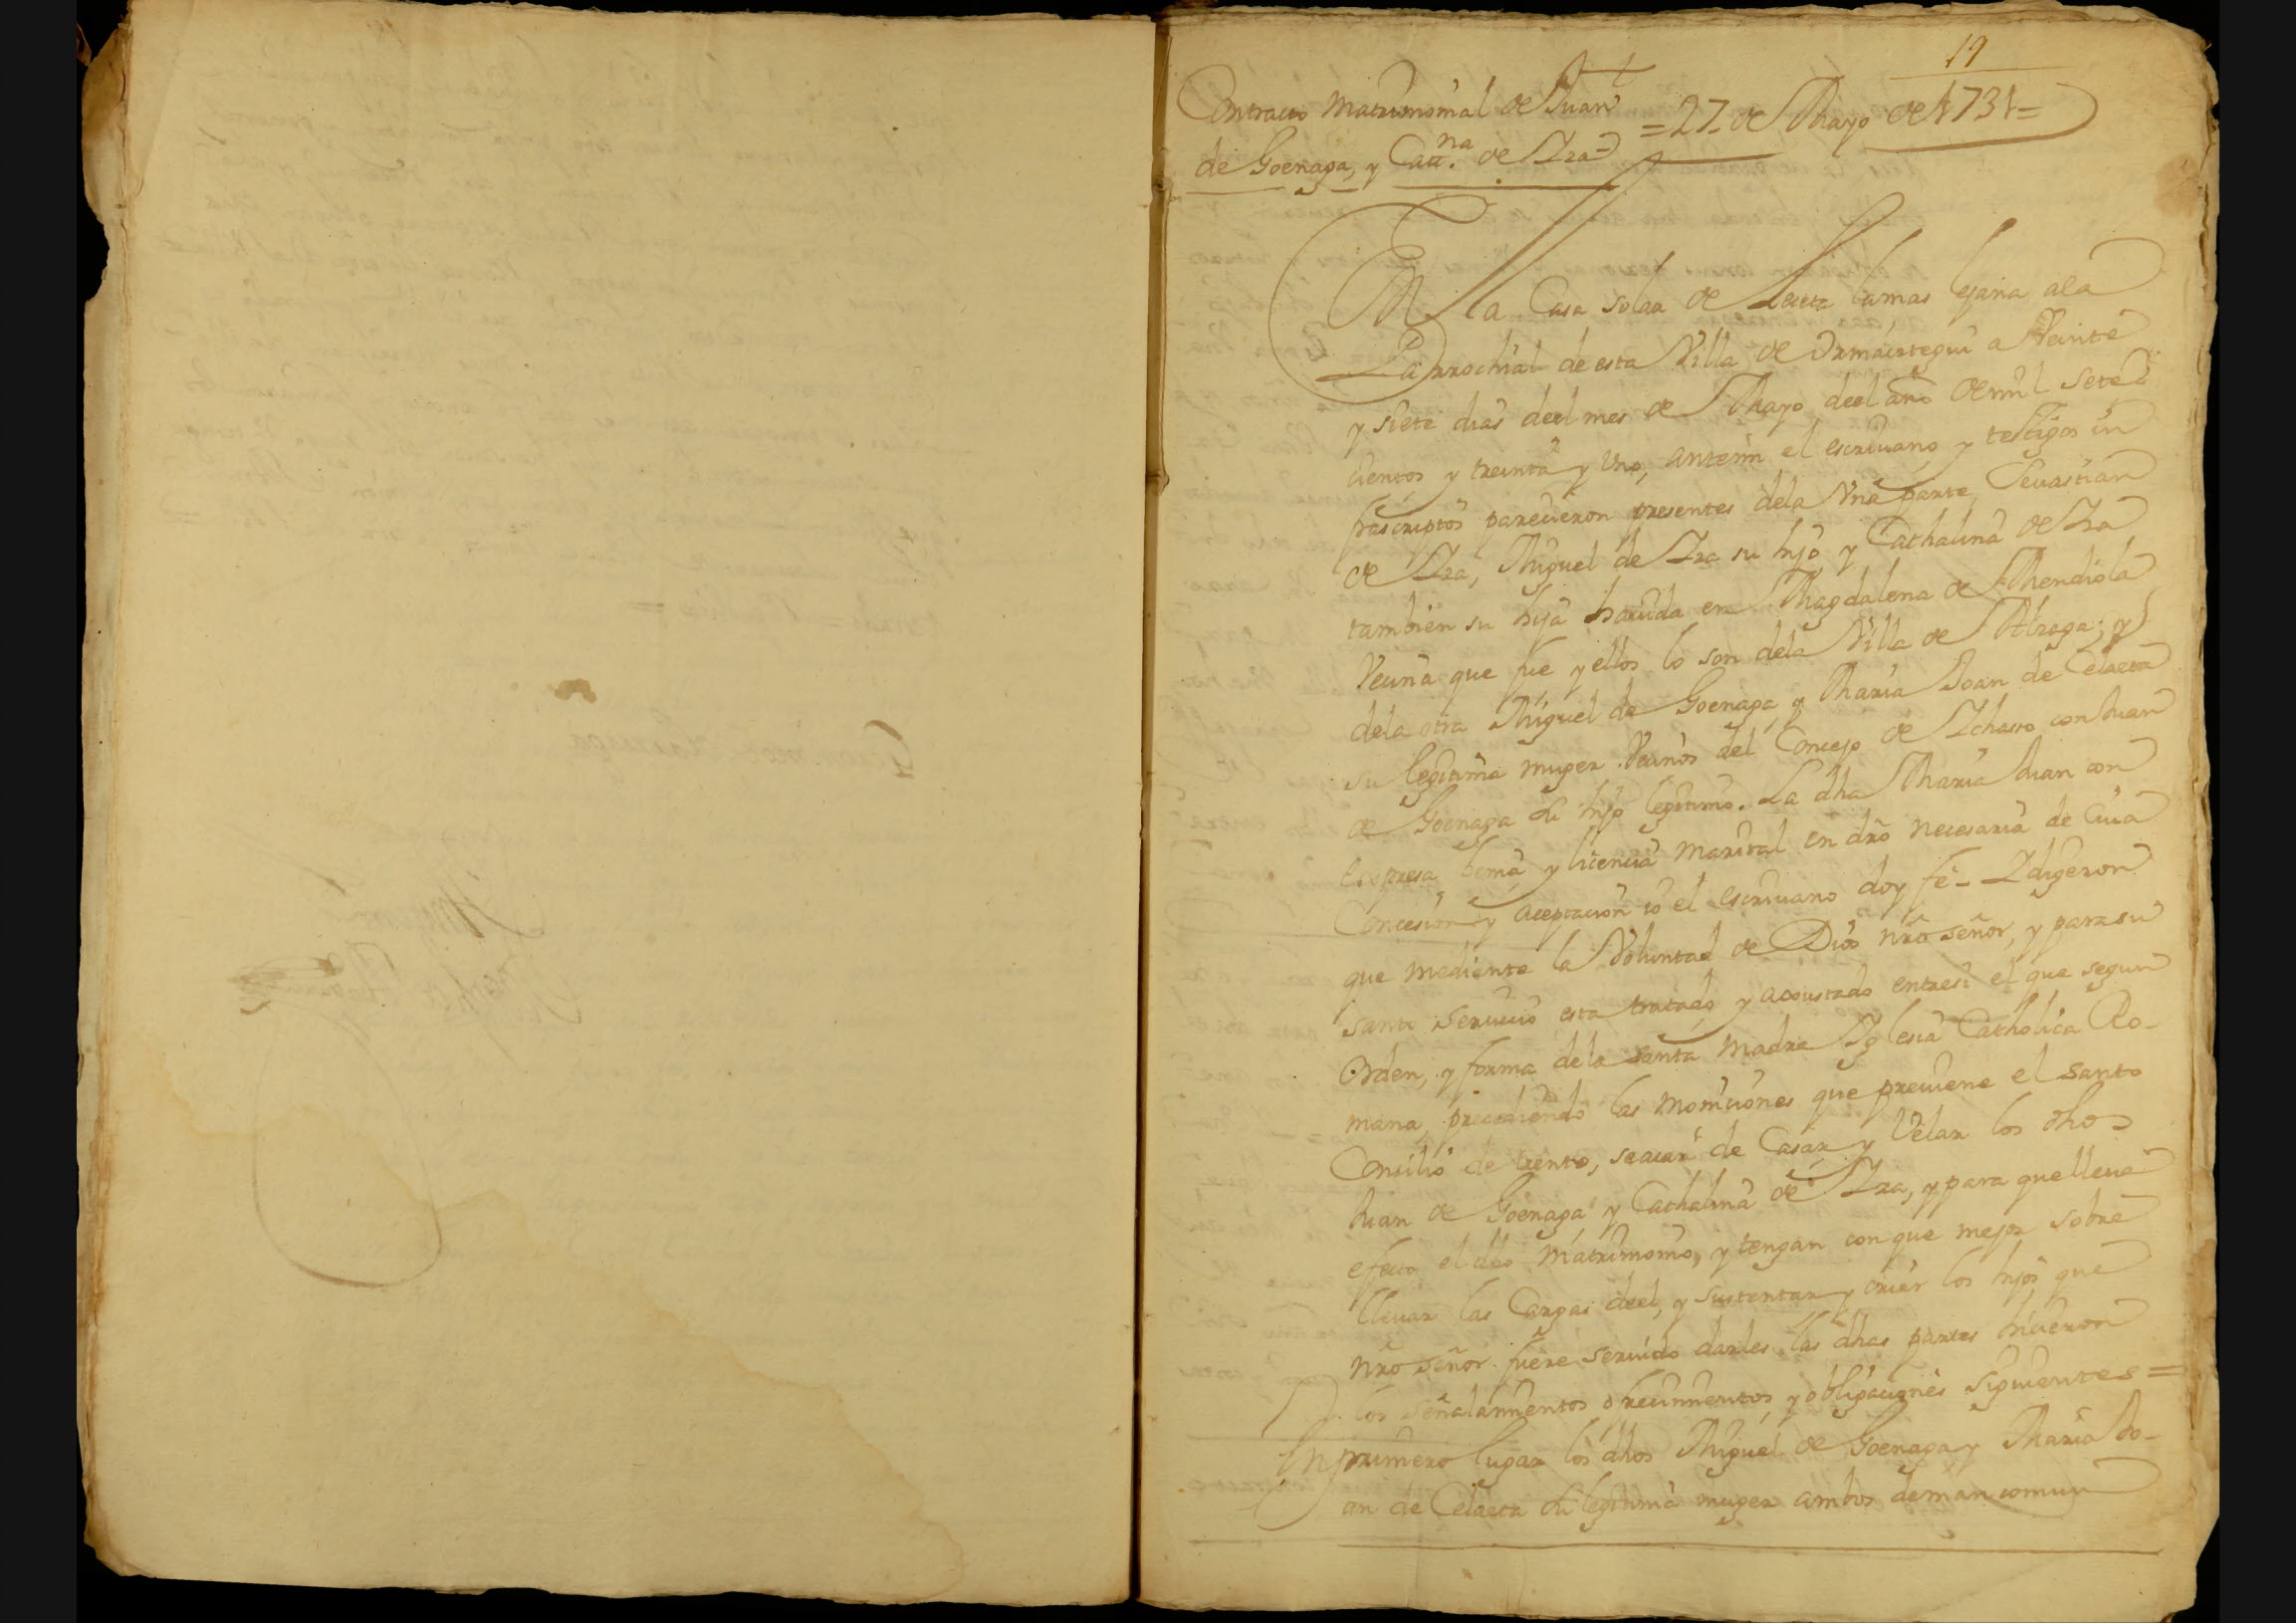 19
Contracto Matrimonial de Juan
de Goenaga, y Catt.na de Yza
=27. de Mayo de 1731=
En la Casa solar de la mas lejana a la
Parrochial de esta Villa de Ormaiztegui a Veinte
y siete dias deel mes de Mayo deel año de mil sete
cientos y treinta y Uno, antemi el escriuano y testigos in
frascriptos parecieron presentes dela Vna parte Sevastian
de Yza, Miguel de Yza su hijo, y Cathalina de Yza
tambien su hija hauida en Magdalena de Mendiola
Vecina que fue y ellos lo son dela Villa de Alzaga; y
dela otra Miguel de Goenaga, y Maria Joan de Celaeta
su legitima muger Vecinos del Concejo de Ychasso con Juan
de Goenaga su hijo legitimo. La dha Maria Juan con
Expresa lizencia marital en dro necesaria de Cuia
Concesion y aceptacion io el escriuano doy fe_ Y digeron
que mediente la Voluntad de Dios nro señor, y para su
santo seruicio esta tratado, y aosustado entresi el que segun
Orden, y forma dela santa Madre Yglesia Catholica Ro-
mana, precediendo las moniciones que preuiene el santo
Concilio de trento, se aian de Casar y Velar los dhos
Juan de Goenaga y Cathalina de Yza, y para que lleue
efecto el dho Matrimonio, y tengan con que mejor sobre
lleuar las Cargas deel, y sustentar y criar los hijos que
nro señor fuere seruido darles las dhas partes hicieron
los señalamientos ofrecimientos, y obligaciones siguientes=
En primero lugar los dhos Miguel de Goenaga y Maria Jo-
an de Celaeta su legitima muger ambos deman comun